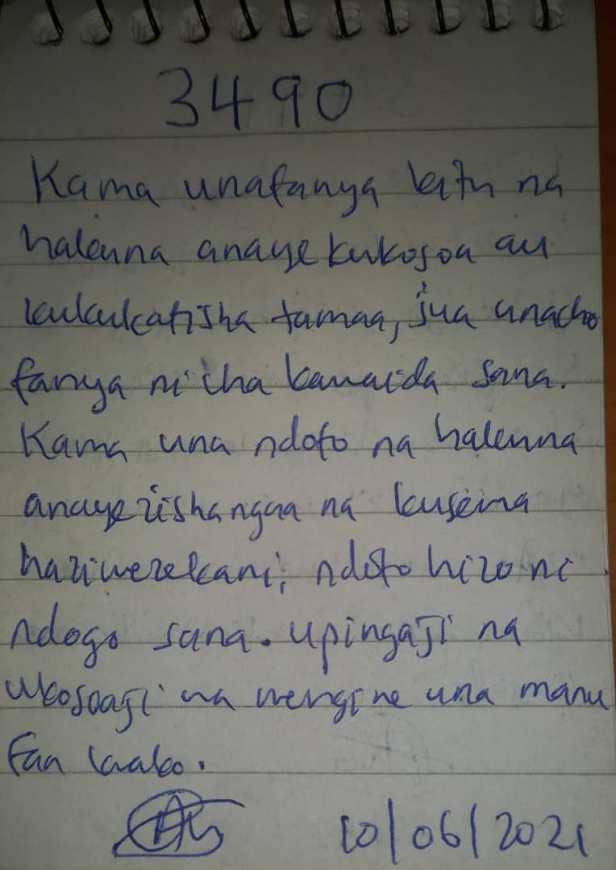 3490
Kama unafanya kitu na
hakuna anayekukosoa au
kukukatisha tamaa, jua unacho
fanya ni cha kawaida sana.
Kama una ndoto na hakuna
anayezishangaa na kusema
haziwezekani, ndoto hizo ni
ndogo sana. upingaji na
ukosoaji wa wengine una manu
faa kwako.
10/06/2021